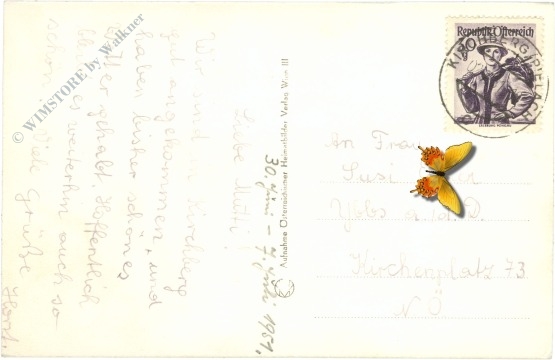 © WIMSTORE by Walkner
30. Juni – 7. Juli 1951,
Liebe Mutti!
Wir sind in Kirchberg
gut angekommen, und
haben bisher schönes
Wetter gehabt. Hoffentlich
bleibt es weiterhin auch so
schön. Viele Grüße
Horst.
Aufnahme Österreichischer Heimatbilder Verlag Wien III
Republik Österreich
30
KIRCHBERG/PIELACH
An Frau
Susi
Ybbs a. d. D.
Kirchenplatz 73
N Ö